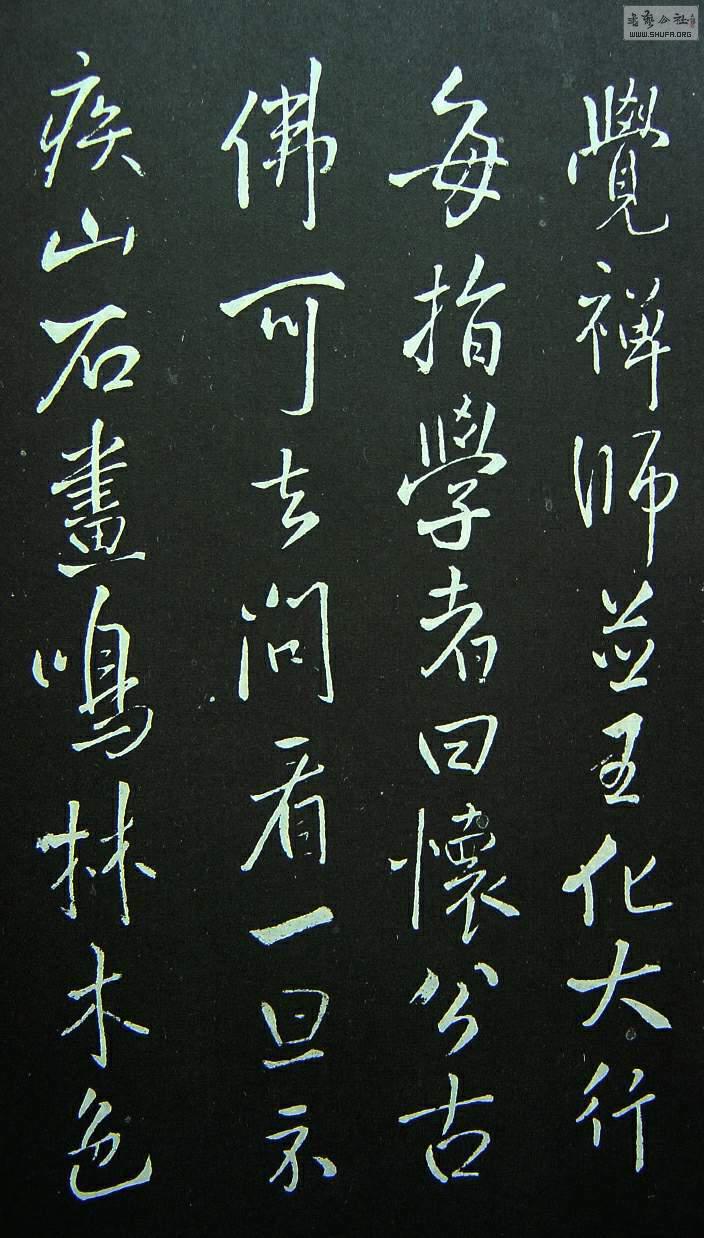 覺禪師並王化大行
每指學者曰懷公古
佛可去問看一旦示
疾山石晝鳴林木色
书艺公社
WWW.SHUFA.ORG